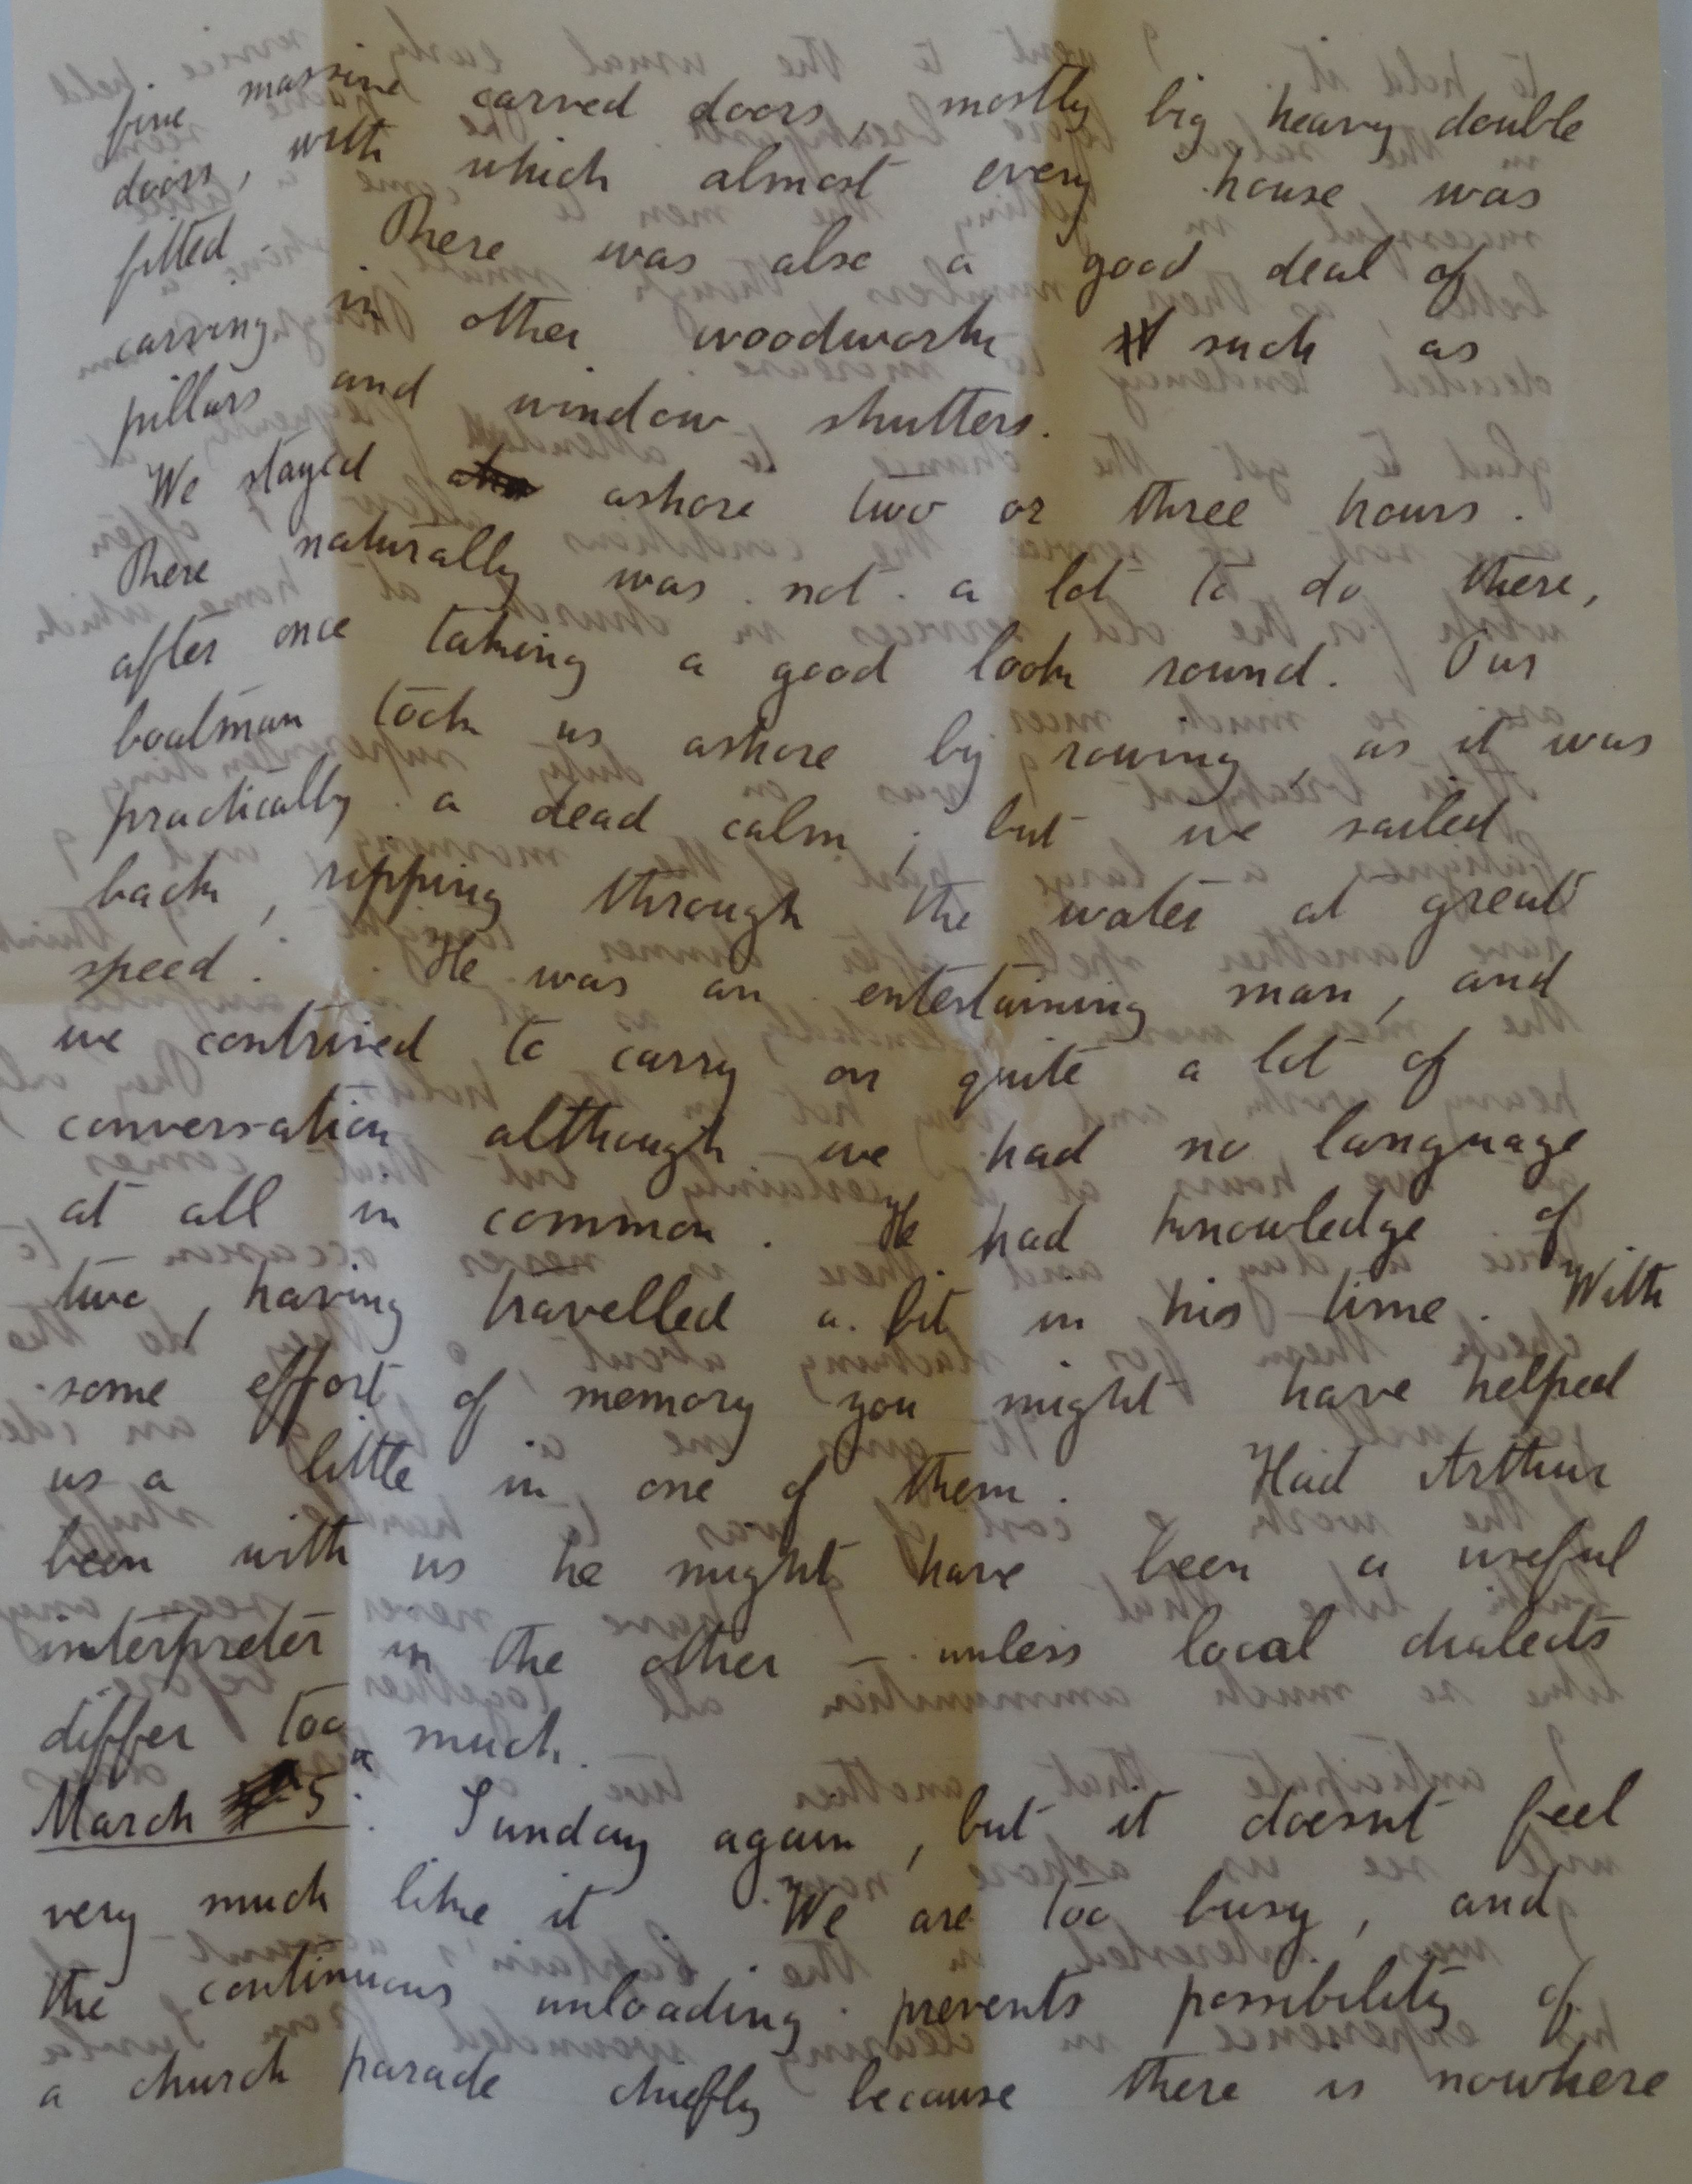 fine massive carved doors, mostly big heavy double
doors, with which almost every house was
fitted. There was also a good deal of
carving in other woodwork such as
pillars and window shutters.
We stayed ashore two or three hours.
There naturally was not a lot to do there,
after once taking a good look round. Our
boatman took us ashore by rowing, as it was
practically a dead calm; but we sailed
back, ripping through the water at great
speed. He was an entertaining man, and
we contrived to carry on quite a lot of
conversation although we had no language
at all in common. He had knowledge of
two, having travelled a bit in his time. With
some effort of memory you might have helped
us a little in one of them. Had Arthur
been with us he might have been a useful
interpreter in the other – unless local dialects
differ too much.
March 5th. Sunday again, but it doesnt feel
very much like it. We are too busy, and
the continuous unloading prevents possibility of
a church parade chiefly because there is nowhere